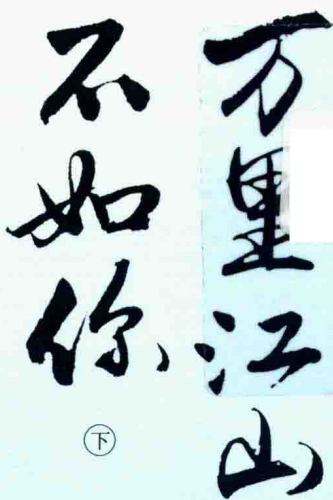 万里江山
不如你
下